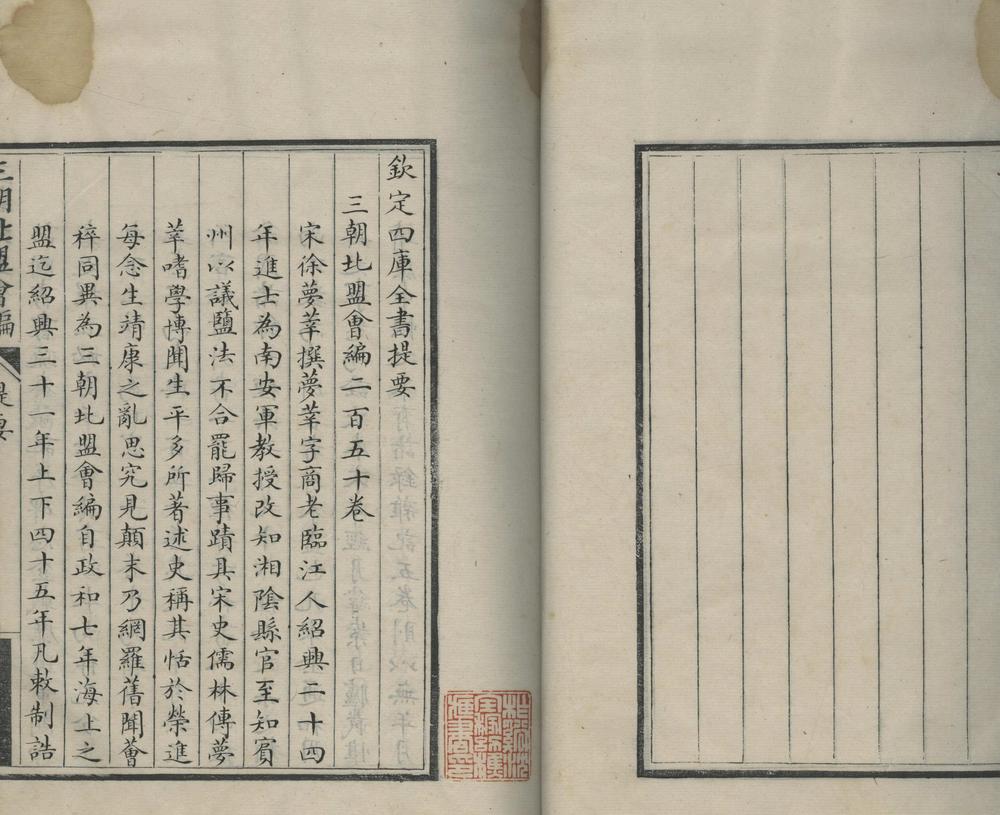 欽定四庫全書提要
三朝北盟會編二百五十卷
宋徐夢莘撰夢莘字商老臨江人紹興二十四
年進士為南安軍教授改知湘陰縣官至知賓
州以議鹽法不合罷歸事蹟具宋史儒林傳夢
莘嗜學博聞生平多所著述史稱其恬於榮進
每念生靖康之亂思究見顛末乃網羅舊聞薈
稡同異為三朝北盟會編自政和七年海上之
盟迄紹興三十一年上下四十五年凡敕制誥
三朝北盟會編 提要